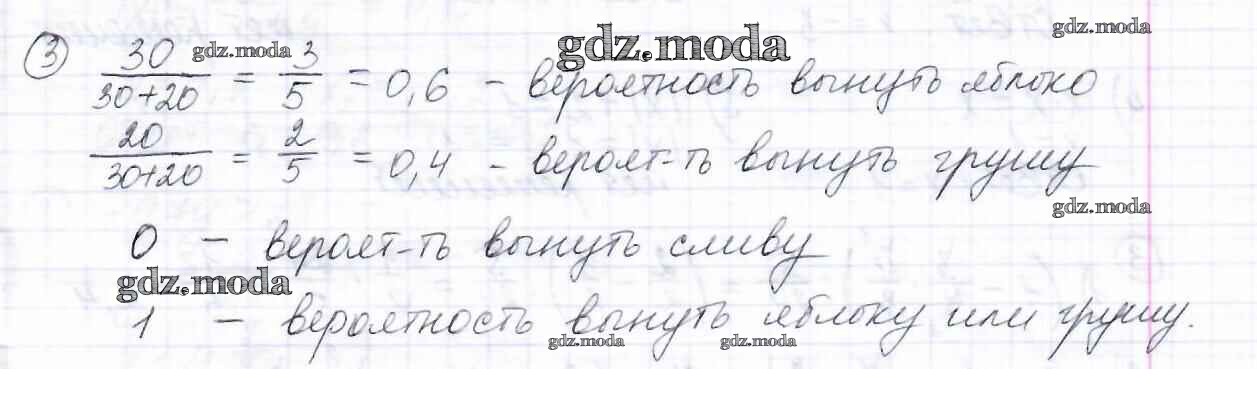 gdz.moda gdz.moda gdz.moda
③ 30/(30+20) = 3/5 = 0,6 – вероятность вынуть яблоко
20/(30+20) = 2/5 = 0,4 – вероят-ть вынуть грушу
gdz.moda
0 – вероят-ть вынуть сливу
gdz.moda
1 – вероятность вынуть яблоку или грушу.
gdz.moda gdz.moda